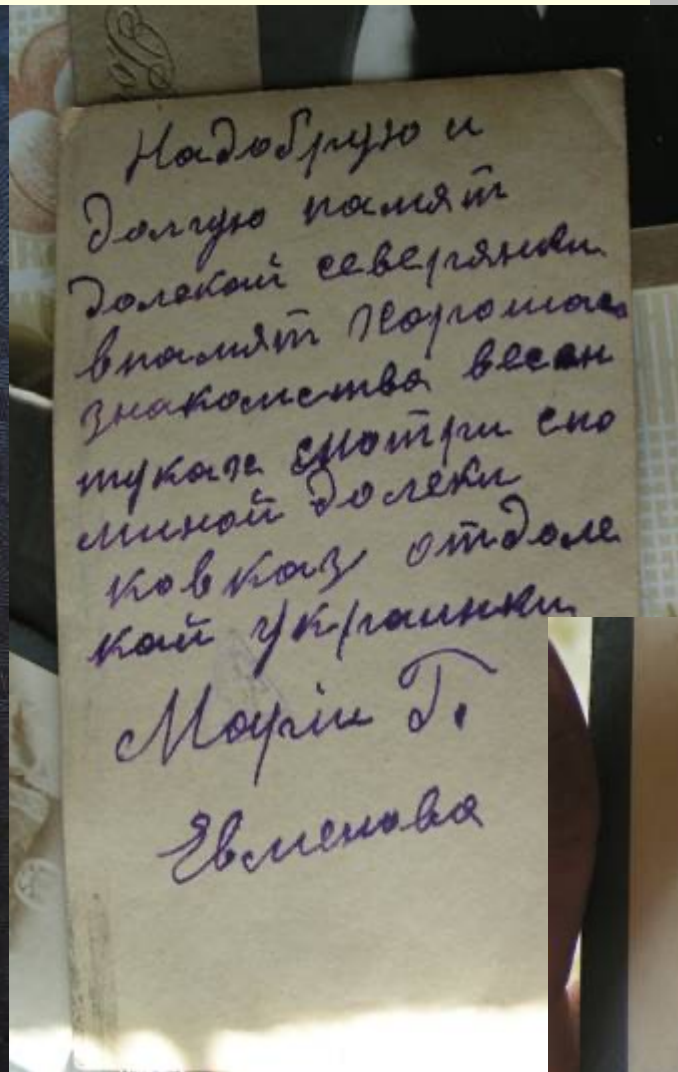 Надобрую и
долгую памят
долекой севергянки
впамят хорошаго
знакомства весен
туках смотри сно
миной долеки
ковказ отдоле
кой украинки
Марiи Г.
Евменова